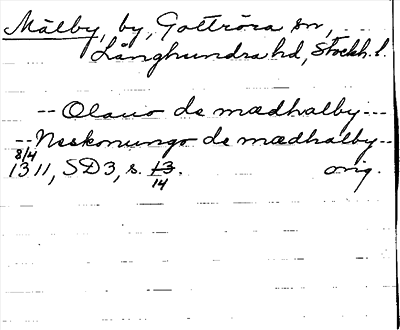 Målby, by, Gottröra sn,
Långhundra hd, Stockh. l.
-- Olauo de mædhalby ---
-- Neskonungo de mædhalby --
8/4
1311, SD3, s. 13. orig.
14